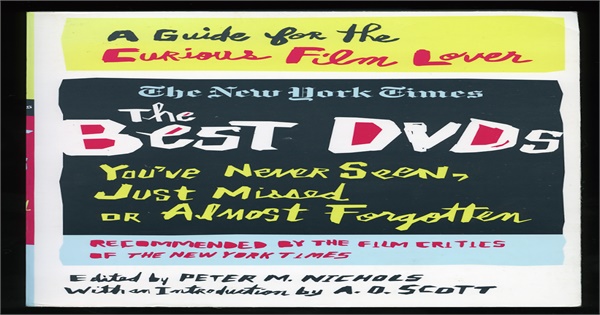 A Guide for the
Curious Film Lover
The New York Times
The
Best DVDs
You've Never Seen,
Just Missed
or Almost Forgotten
RECOMMENDED BY THE FILM CRITICS
OF THE NEW YORK TIMES
Edited by PETER M. NICHOLS
With an Introduction by A. O. SCOTT